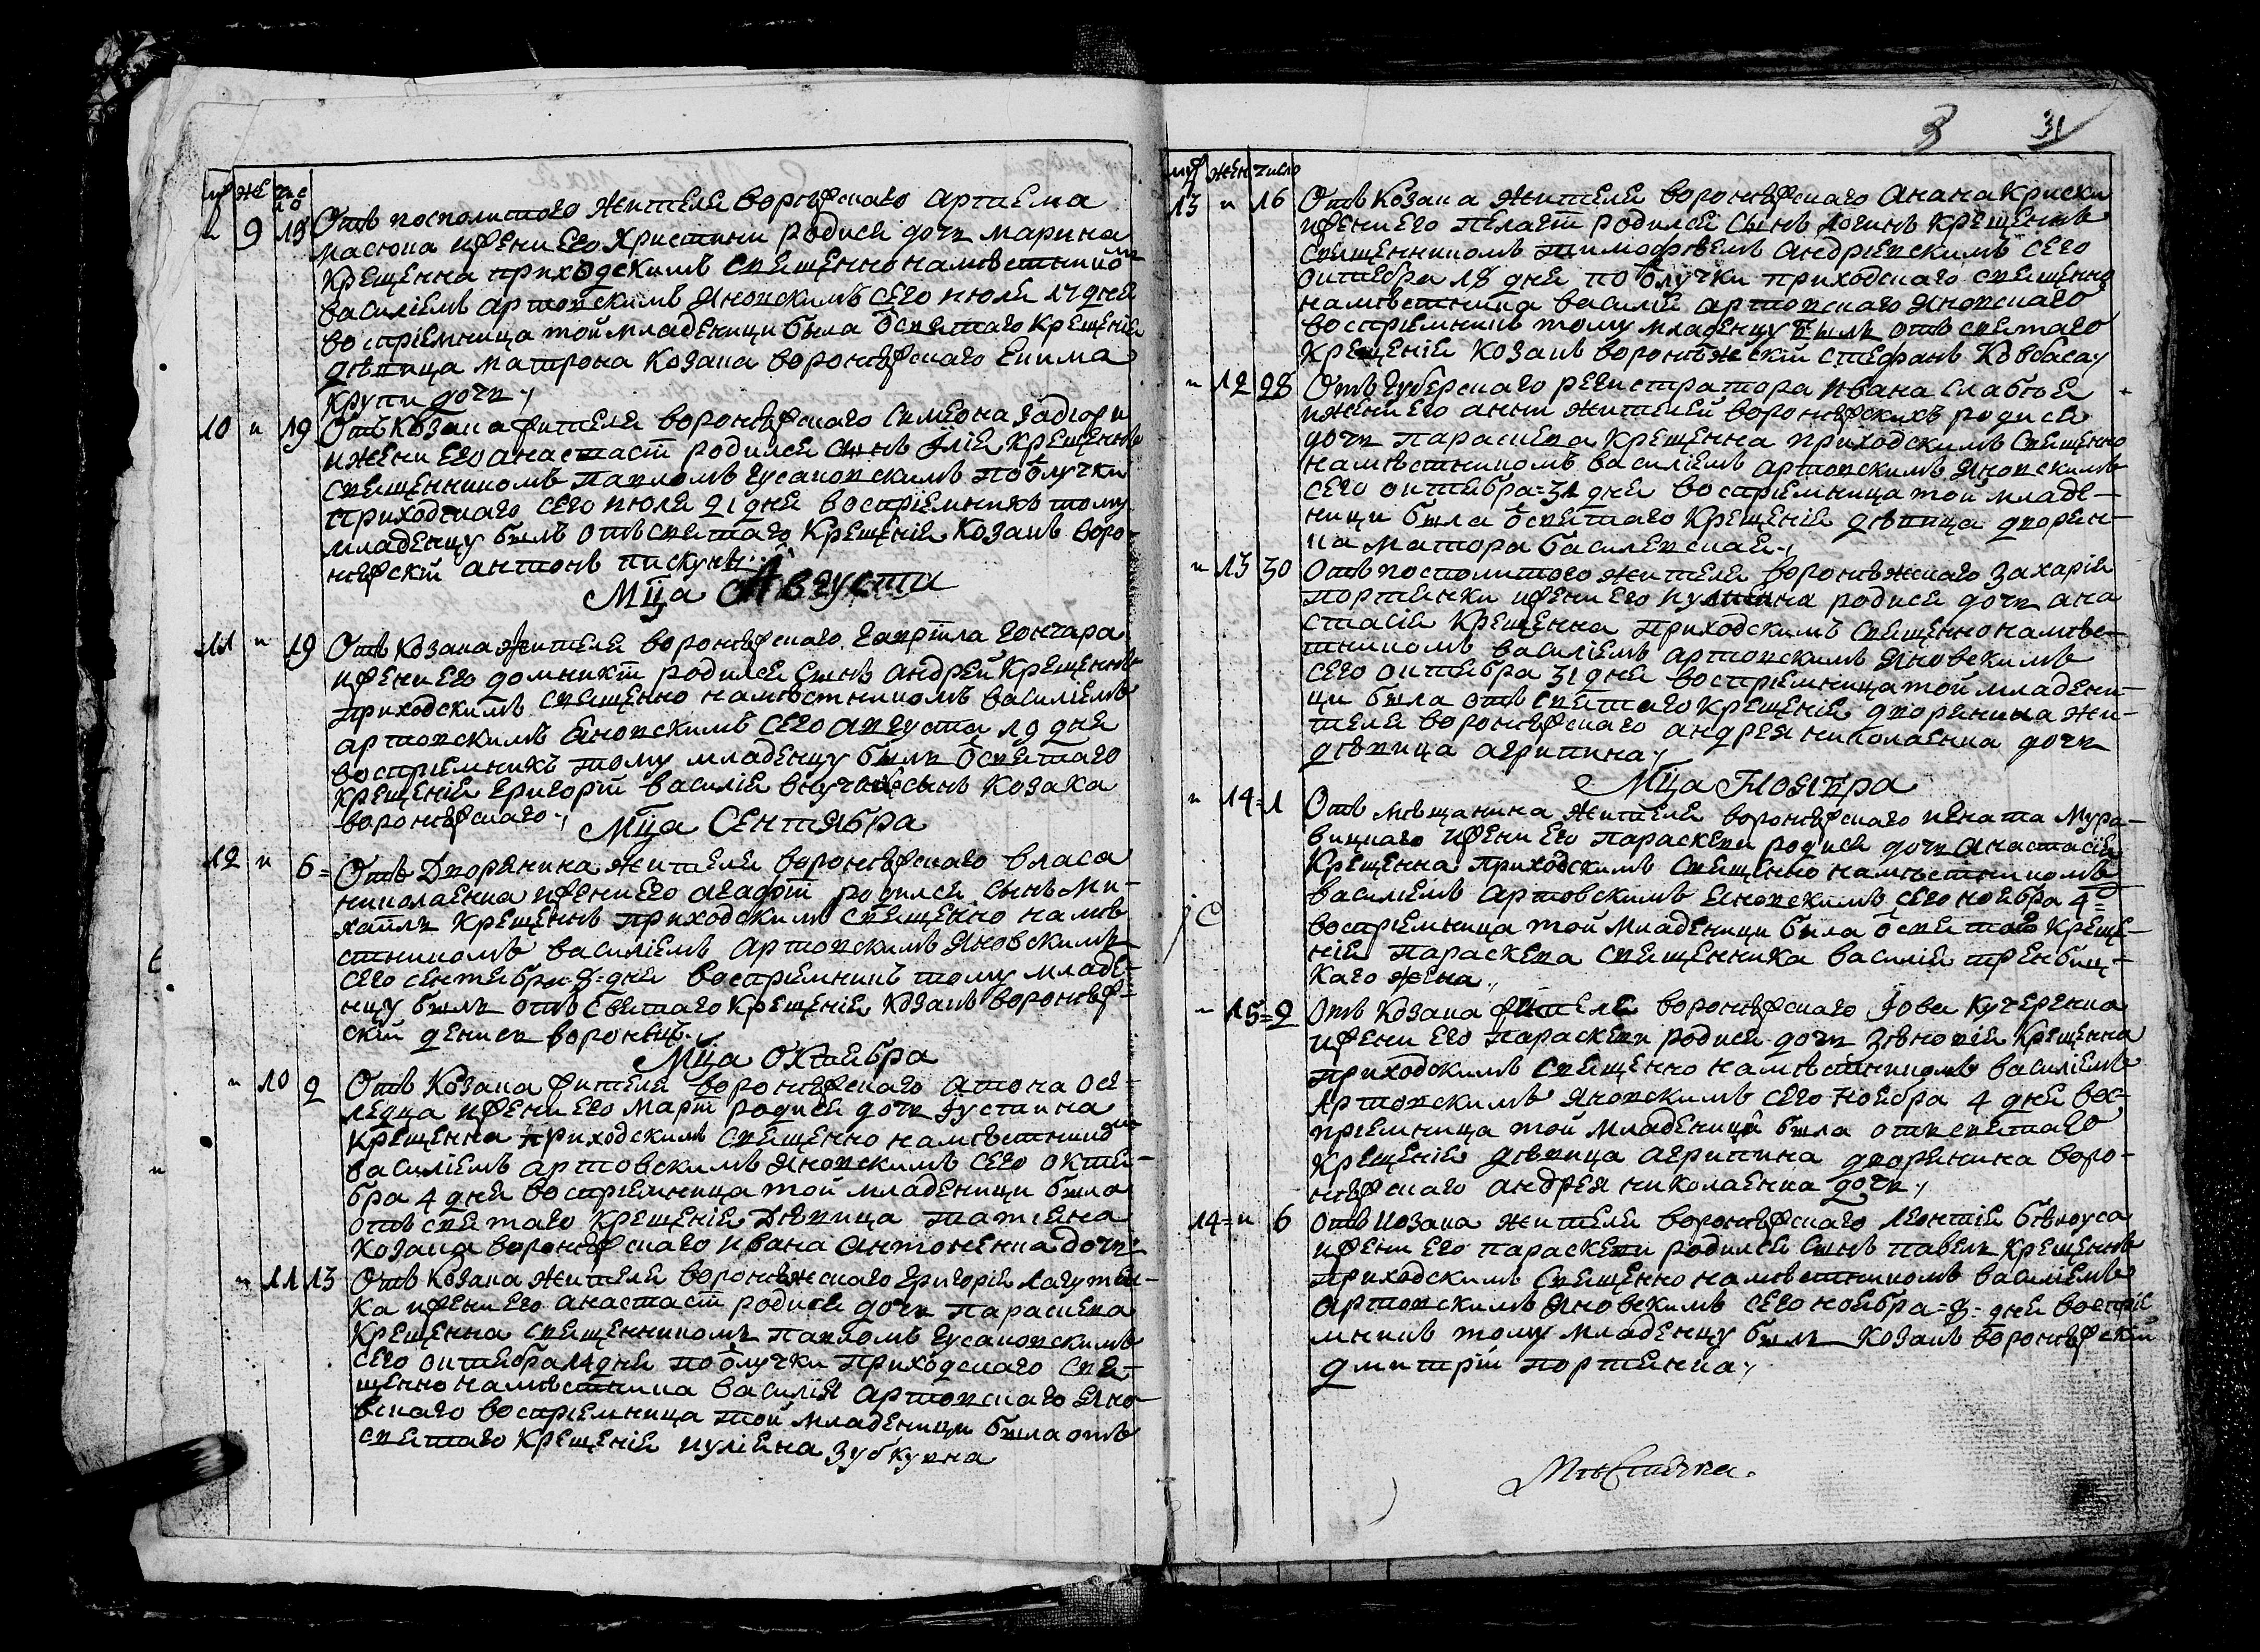 му же число
9 15 Отъ посполитого жителя воронѣжскаго артема
масюка и жени его христини родися дочъ марина
крещенна приходскимъ священно намѣстникомъ
василіемъ артовскимъ Яновскимъ сего июля 17 дня
воспріемница той младеници была ѿ святаго крещенія
дѣвица матрона козака воронѣжскаго
крупи дочъ
10 и 19 Отъ козака жителя воронѣжскаго симеона
и жени его анастасіи родился синъ Илія крещеннъ
священникомъ павломъ гусаковскимъ по ѿлучки
приходскаго сего июля 21 дня воспріемникъ тому
младенцу былъ отъ святаго крещенія козакъ воро-
нѣжскій антонъ пискунъ
Мца Августа
11 и 19 Отъ козака жителя воронѣжскаго гавріила гончара
и жени его домникіи родился синъ андрей крещеннъ
приходскимъ священно намѣстникомъ василіемъ
артовскимъ яновскимъ сего августа 19 дня
воспріемникъ тому младенцу былъ ѿ святаго
крещенія григорій василія сынъ козака
воронѣжскаго
Мца Сентября
12 и 6 Отъ Дворянина жителя воронѣжскаго власа
николаенка и жени его агафіи родился сынъ ми-
хаилъ крещеннъ приходскимъ священно намѣ
стникомъ василіемъ артовскимъ яновскимъ
сего сентебра 8 дня воспріемникъ тому младе-
нцу былъ отъ святаго крещенія козакъ воронѣж-
скій денисъ
Мца Октебра
и 10 2 Отъ козака жителя воронѣжскаго
и жени его марфи родися дочъ Іустина
крещенна приходскимъ священно намѣстникомъ
василіемъ артовскимъ яновскимъ сего октеи-
бра 4 дня воспріемница той младеници была
отъ святаго крещенія Дѣвица татіана
козака воронѣжскаго ивана антоненка дочъ
и 11 13 Отъ козака жителя воронѣжскаго григорія лагутен-
ка и жени его анастасіи родися дочъ параскева
крещенна священникомъ павломъ гусаковскимъ
сего октебра 14 дня по ѿлучки приходскаго свя-
щенно намѣстника василія артовскаго яно-
вскаго воспріемница той младеници была отъ
святаго крещенія иуліяна зубкувна
3 31
муж жен число
13 и 16 Отъ козака жителя воронѣжскаго
и жени его пелагіи родился сынъ логинъ крещеннъ
священникомъ тимофѣемъ андріевскимъ сего
октебра 18 дня по ѿлучки приходскаго священно
намѣстника василія артовскаго яновскаго
воспріемникъ тому младенцу былъ отъ святаго
крещенія козакъ воронѣжскій стефанъ ковбаса
и 12 28 Отъ губерскаго регистратора ивана
и жени его анни жителей воронѣжскихъ родися
дочъ параскева крещенна приходскимъ священно
намѣстникомъ василіемъ артовскимъ яновскимъ
сего октебра 31 дня воспріемница той младе-
ници была ѿ святаго крещенія дѣвица дворян-
ка
и 13 30 Отъ посполитого жителя воронѣжскаго захарія
портянки и жени его родися дочъ ана
стасія крещенна приходскимъ священно намѣс-
тникомъ василіемъ артовскимъ яновскимъ
сего октебра 31 дня воспріемница той младени-
ци была отъ святаго крещенія дворянина жи-
теля воронѣжскаго андрея николаенка дочъ
дѣвица агрипина
Мца Ноявра
и 14 1 Отъ мѣщанина жителя воронѣжскаго игната мура-
вицкаго и жени его параскеви родися дочъ анастасія
крещенна приходскимъ священно намѣстникомъ
василіемъ артовскимъ яновскимъ сего ноебра 4 д
воспріемница той младеници была ѿ святаго креще-
нія параскева священника василія
каго жена
и 15 2 Отъ козака жителя воронѣжскаго Іова кучеренка
и жени его параскеви родися дочъ зѣновія крещенна
приходскимъ священно намѣстникомъ василіемъ
артовскимъ яновскимъ сего ноебра 4 дня вос-
пріемница той младеници была отъ святаго
крещенія дѣвица агрипина дворянина воро-
нѣжскаго андрея николаенка дочъ
14 и 6 Отъ козака жителя воронѣжскаго леонтія бѣлоуса
и жени его параскеви родился сынъ павелъ крещеннъ
приходскимъ священно намѣстникомъ василіемъ
артовскимъ яновскимъ сего ноебра 8 дня воспріе
мникъ тому младенцу былъ козакъ воронѣжскій
димитрій портянка